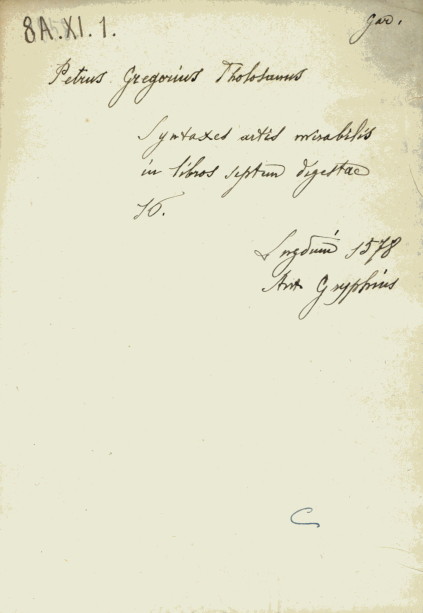 8A.XI.1.
gar.
Petrus Gregorius Tholosanus
Syntaxes artis mirabilis
in libros septem digestae
16.
Lugduni 1578
Ant Gryphius
C